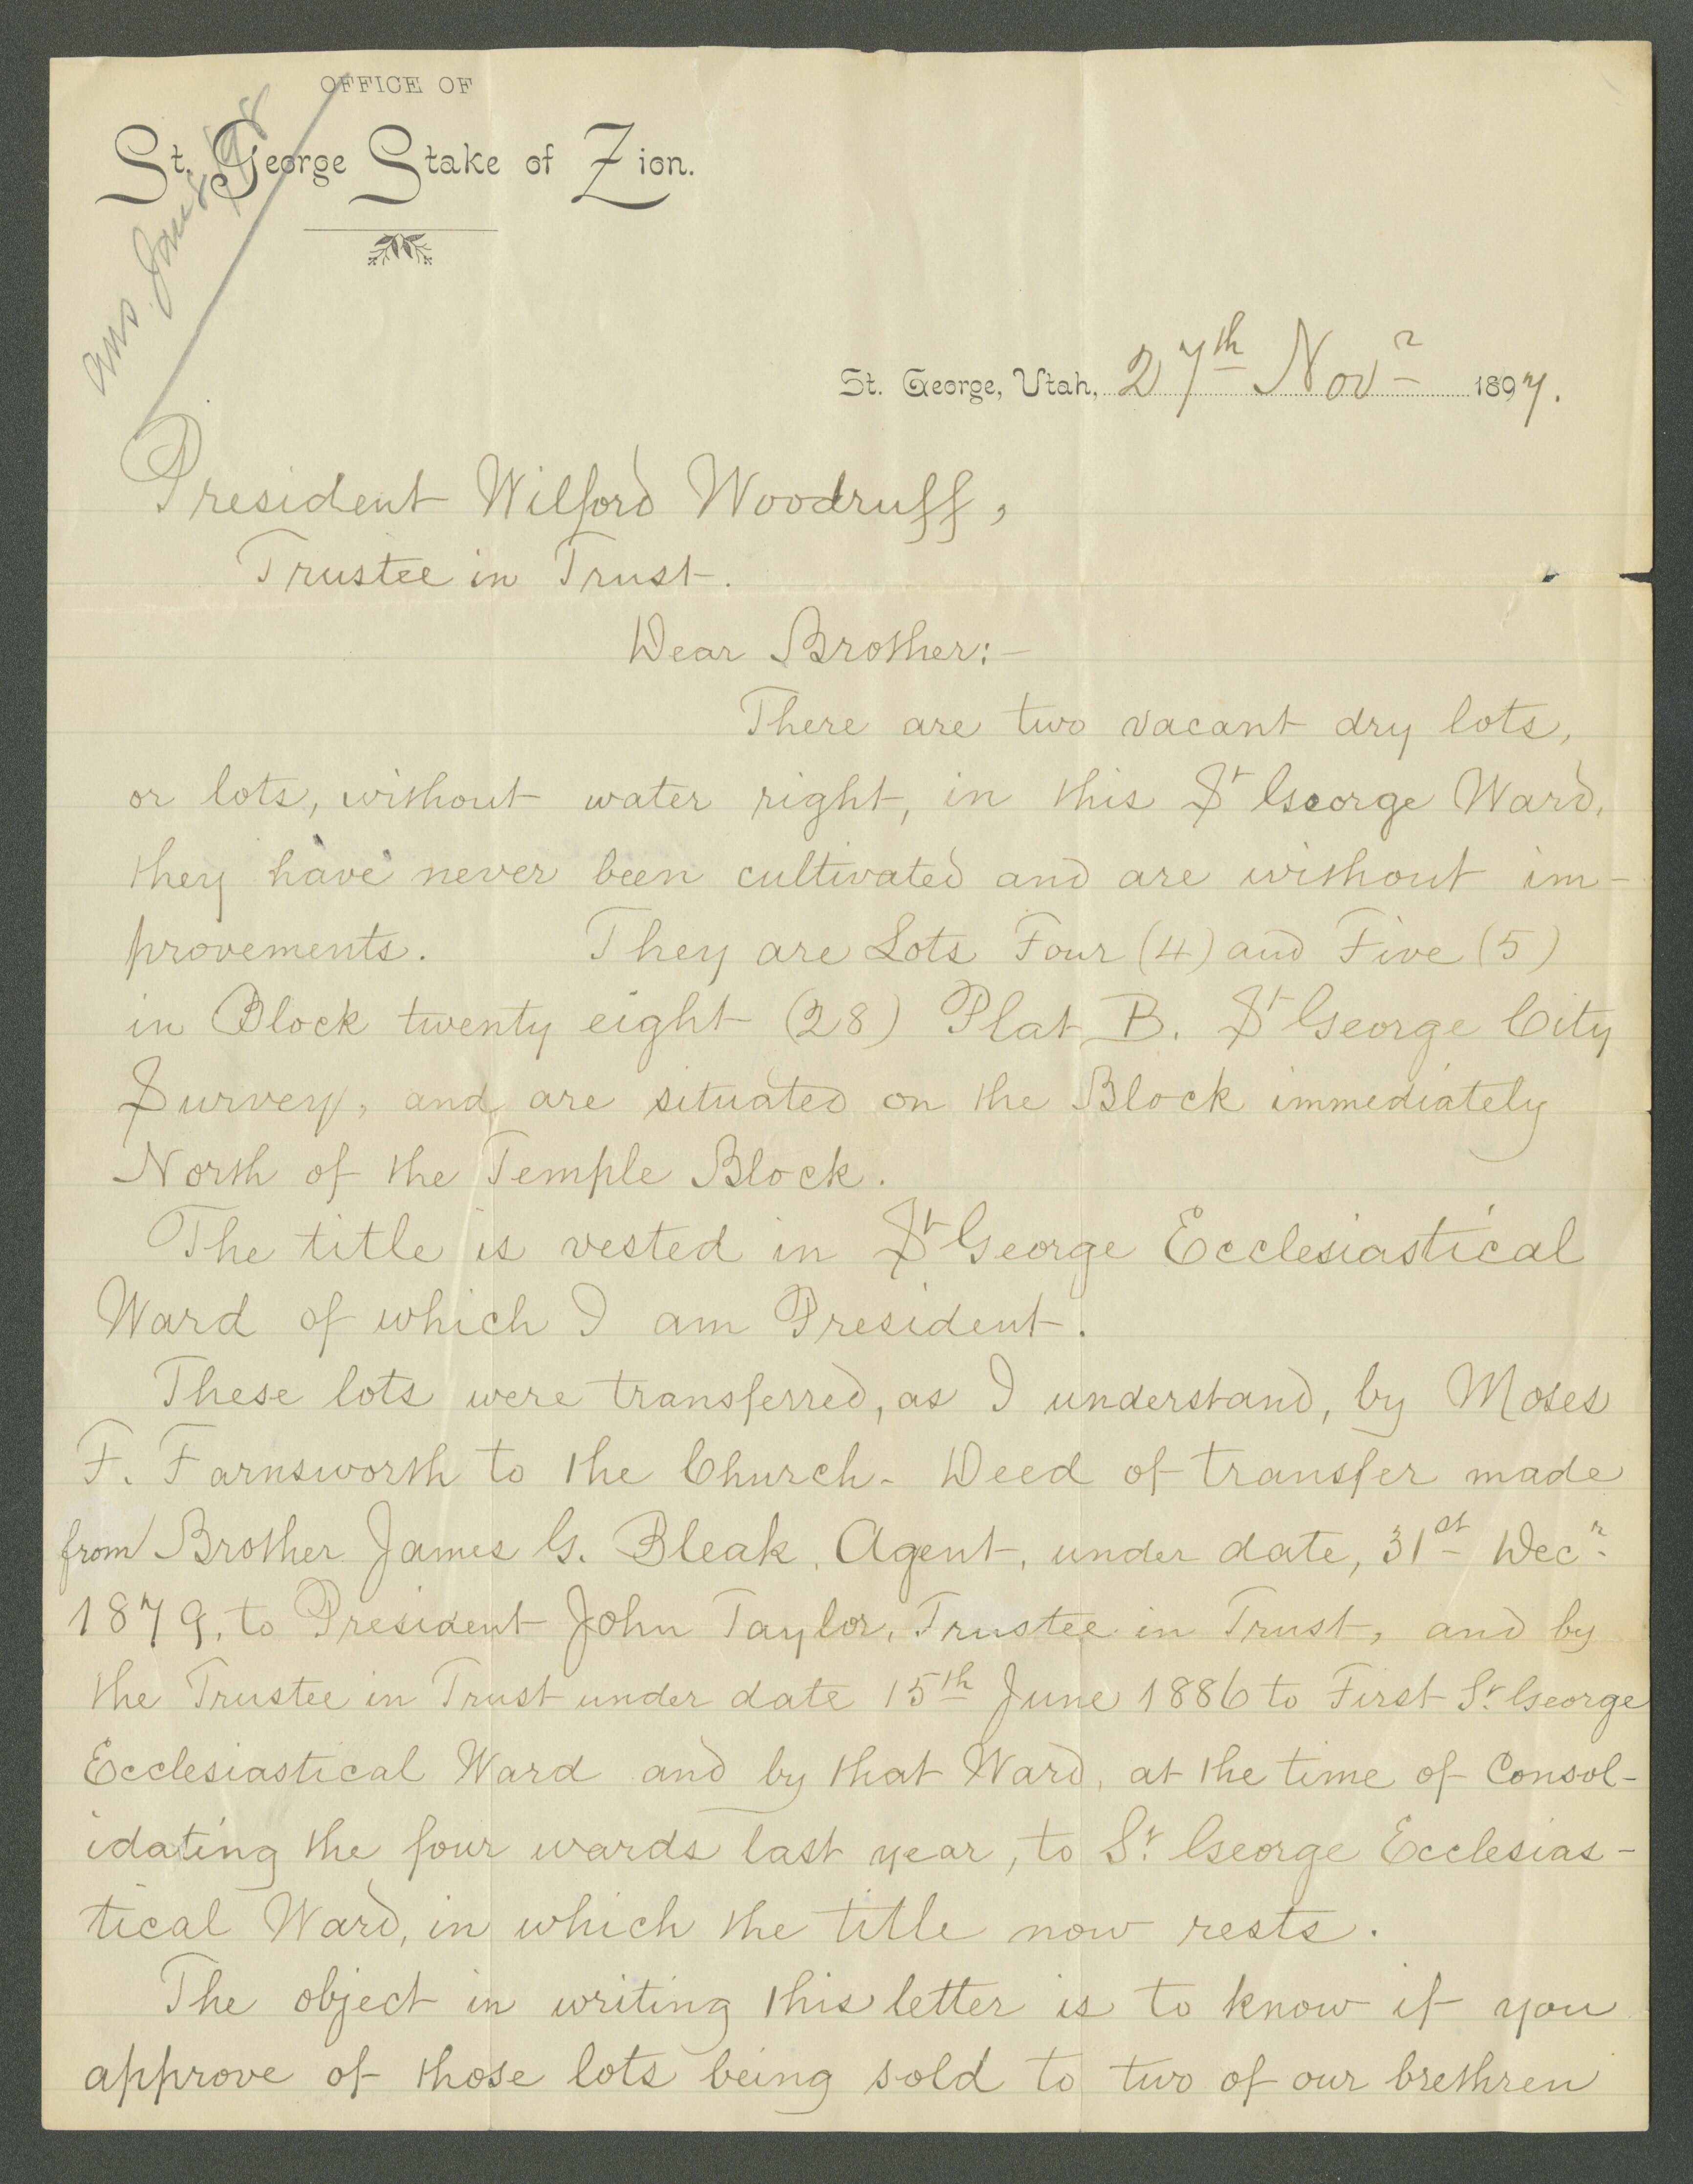 OFFICE OF
St. George Stake of Zion.
ans. Jan 8/98
St. George, Utah, 27th Novr 1897.
President Wilford Woodruff,
Trustee in Trust.
Dear Brother:-
There are two vacant dry lots,
or lots, without water right, in this St George Ward,
they have never been cultivated and are without im-
provements. They are Lots Four (4) and Five (5)
in Block twenty eight (28) Plat B. St George City
Survey, and are situated on the Block immediately
North of the Temple Block.
The title is vested in St George Ecclesiastical
Ward of which I am President.
These lots were transferred, as I understand, by Moses
F. Farnsworth to the Church. Deed of transfer made
from Brother James G. Bleak, Agent, under date, 31st Decr
1879, to President John Taylor, Trustee in Trust, and by
the Trustee in Trust under date 15th June 1886 to First St. George
Ecclesiastical Ward and by that Ward, at the time of Consol-
idating the four wards last year, to St. George Ecclesias-
tical Ward, in which the title now rests.
The object in writing this letter is to know if you
approve of those lots being sold to two of our brethren